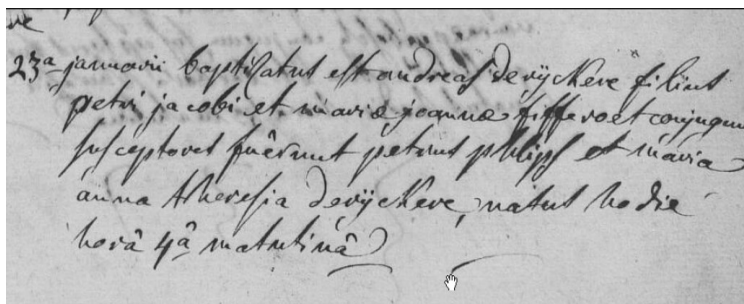 23a januarii baptisatus est andreas derÿckere filius
petri jacobi et mariæ joannæ conjugum
susceptores fuêrunt petrus philips et maria
anna theresia derÿckere, natus hodie
horâ 4â matutinâ